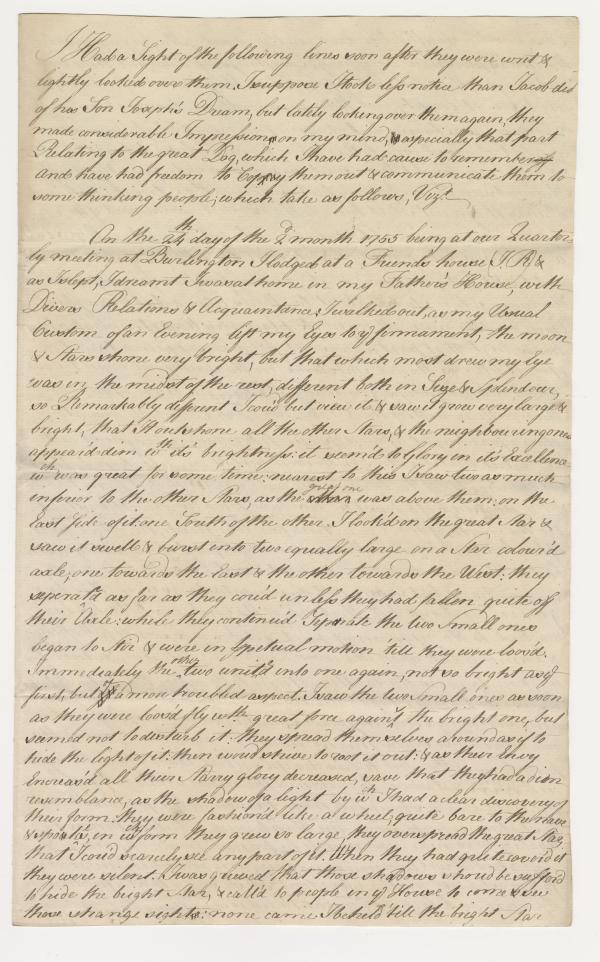 I Had a Sight of the following lines soon after they were writ &
lightly looked over them, I suppose I took less notice than Jacob did
of his Son Joseph's Dream, but lately looking over them again, they
made considerable Impression on my mind, especially that part
Relating to the great Dog, which I have had cause to remember
and have had freedom to Coppy them out & communicate them to
some thinking people, which take as follows, Vizt.
On the 24th day of the 2d month 1755 being at our Quarter
ly meeting at Burlington I lodged at a Friends house J. R. &
as I slept, I dreamt I was at home in my Father's House, with
Divers Relations & Acquaintance; I walked out, as my Usual
Custom of an Evening lift my Eyes to ye firmament, the moon
& Stars shone very bright, but that which most drew my Eye
was in the midst of the rest, different both in Seize & Splendour,
so Remarkably different I cou'd but view it & saw it grow very large &
bright, that it outshone all the other Stars, & the neighbouring ones
appear'd dim wth it's brightness: it seem'd to Glory in it's Excellence
wch was great for some time: nearest to this I saw two as much
inferior to the other Stars, as the great one was above them: on the
East side of it one South of the other. I look'd on the great Star &
saw it swell & burst into two equally large on a Star colour'd
axle, one towards the East & the other towards the West: they
seperated as far as they cou'd unless they had fallen quite off
their Axle: while they continu'd Seperate the two small ones
began to Stir & were in perpetual motion till they were loos'd.
Immediately the other two unit'd into one again, not so bright as ye
first, but a more troubled aspect. I saw the two Small ones as soon
as they were loos'd fly wth great force against the bright one, but
seemed not to disturb it: they spread themselves around as if to
hide the light of it: then wou'd strive to root it out: & as their Envy
Encreas'd all their Starry glory decreased, save that they had a dim
resemblance, as the shadow of a light by wch I had a clear discovery of
their form: they were fashion'd like a wheel, quite bare to the nave
& in wch form they grew so large, they overspread the great Star,
that I cou'd scarcely see any part of it. When they had quite cover'd it
they were silent. I was grieved that those shadows shou'd be suffer'd
to hide the bright Star, & call'd to people in ye House to come & see
those strange sights: none came I beheld till the bright Star